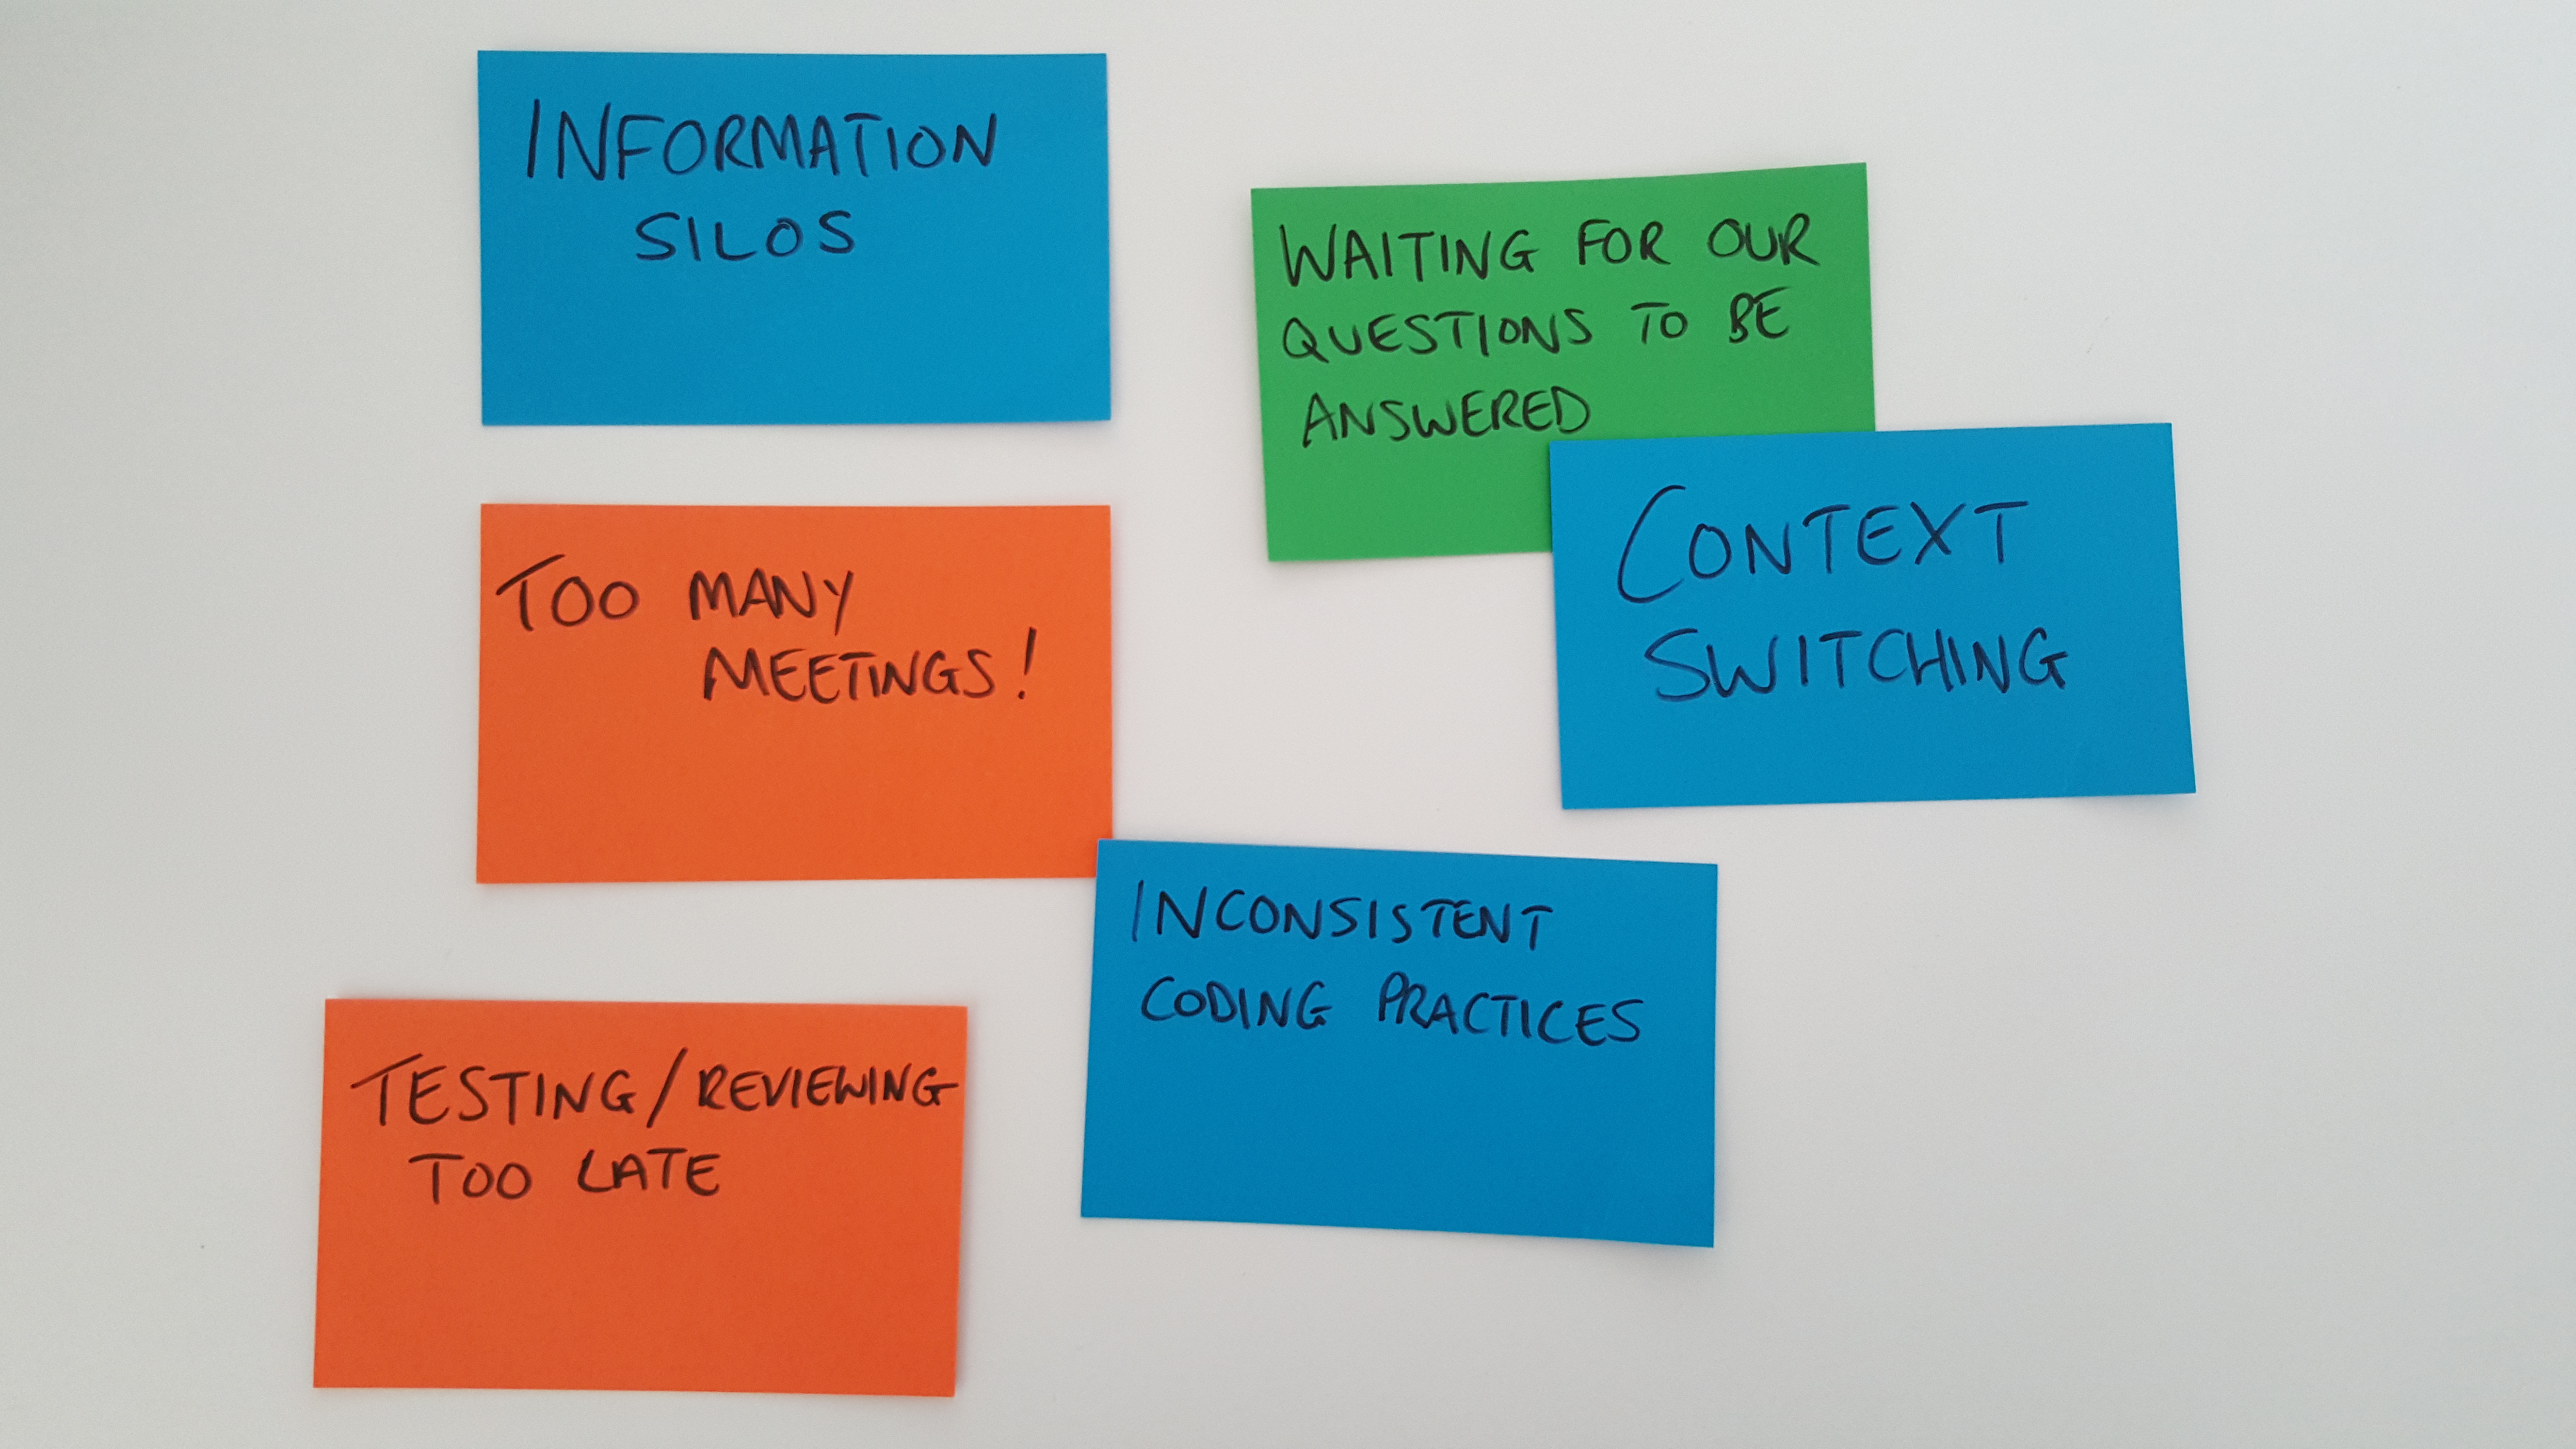 INFORMATION
SILOS
WAITING FOR OUR
QUESTIONS TO BE
ANSWERED
CONTEXT
SWITCHING
TOO MANY
MEETINGS!
INCONSISTENT
CODING PRACTICES
TESTING/REVIEWING
TOO LATE